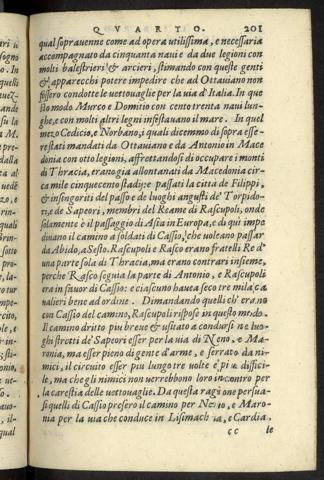 QVARTO. 201
qual soprauenne come ad opera utilissima, e necessaria
accompagnato da cinquanta naui e da due legioni con
molti balestrieri & arcieri, stimando con queste genti
& apparecchi potere impedire che ad Ottauiano non
fossero condotte le uettouaglie per la uia d'Italia. In que
sto modo Murco e Domitio con cento trenta naui lun-
ghe, e con molti altri legni infestauano il mare. In quel
mezo Cedicio, e Norbano, i quali dicemmo di sopra esse-
re stati mandati da Ottauiano e da Antonio in Mace
donia con otto legioni, affrettandosi di occupare i monti
di Thracia, erano gia allontanati da Macedonia cir-
ca mile cinquecento stadij: e passati la citta de Filippi,
& insegnoriti del passo e de luoghi angusti de' Torpido-
ni, e de Sapeori, membri del Reame di Rascupoli, onde
solamente è il passaggio di Asia in Europa, e di qui impe
diuano il camino a soldati di Cassio, che uoleano passar
da Abido, a Sesto. Rascupoli e Rasco erano fratelli Re d'
una parte sola di Thracia, ma erano contrari insieme,
perche Rasco seguia la parte di Antonio, e Rascupoli
era in fauor di Cassio: e ciascuno hauea seco tre mila ca
ualieri bene ad ordine. Dimandando quelli ch' erano
con Cassio del camino, Rascupoli rispose in questo modo.
Il camino dritto piu breue & usitato a condursi ne luo-
ghi stretti de' Sapeori esser per la uia di Neno, e Ma-
ronia, ma esser pieno di gente d'arme, e serrato da ni-
mici, il circuito esser piu lungo tre uolte e piu diffici-
le, ma che gli nimici non uerrebbono loro incontro per
la carestia delle uettouaglie. Da questa ragione persua-
si quelli di Cassio presero il camino per Neno, e Maro-
nia per la uia che conduce in Lisimachia, e Cardia,
cc le